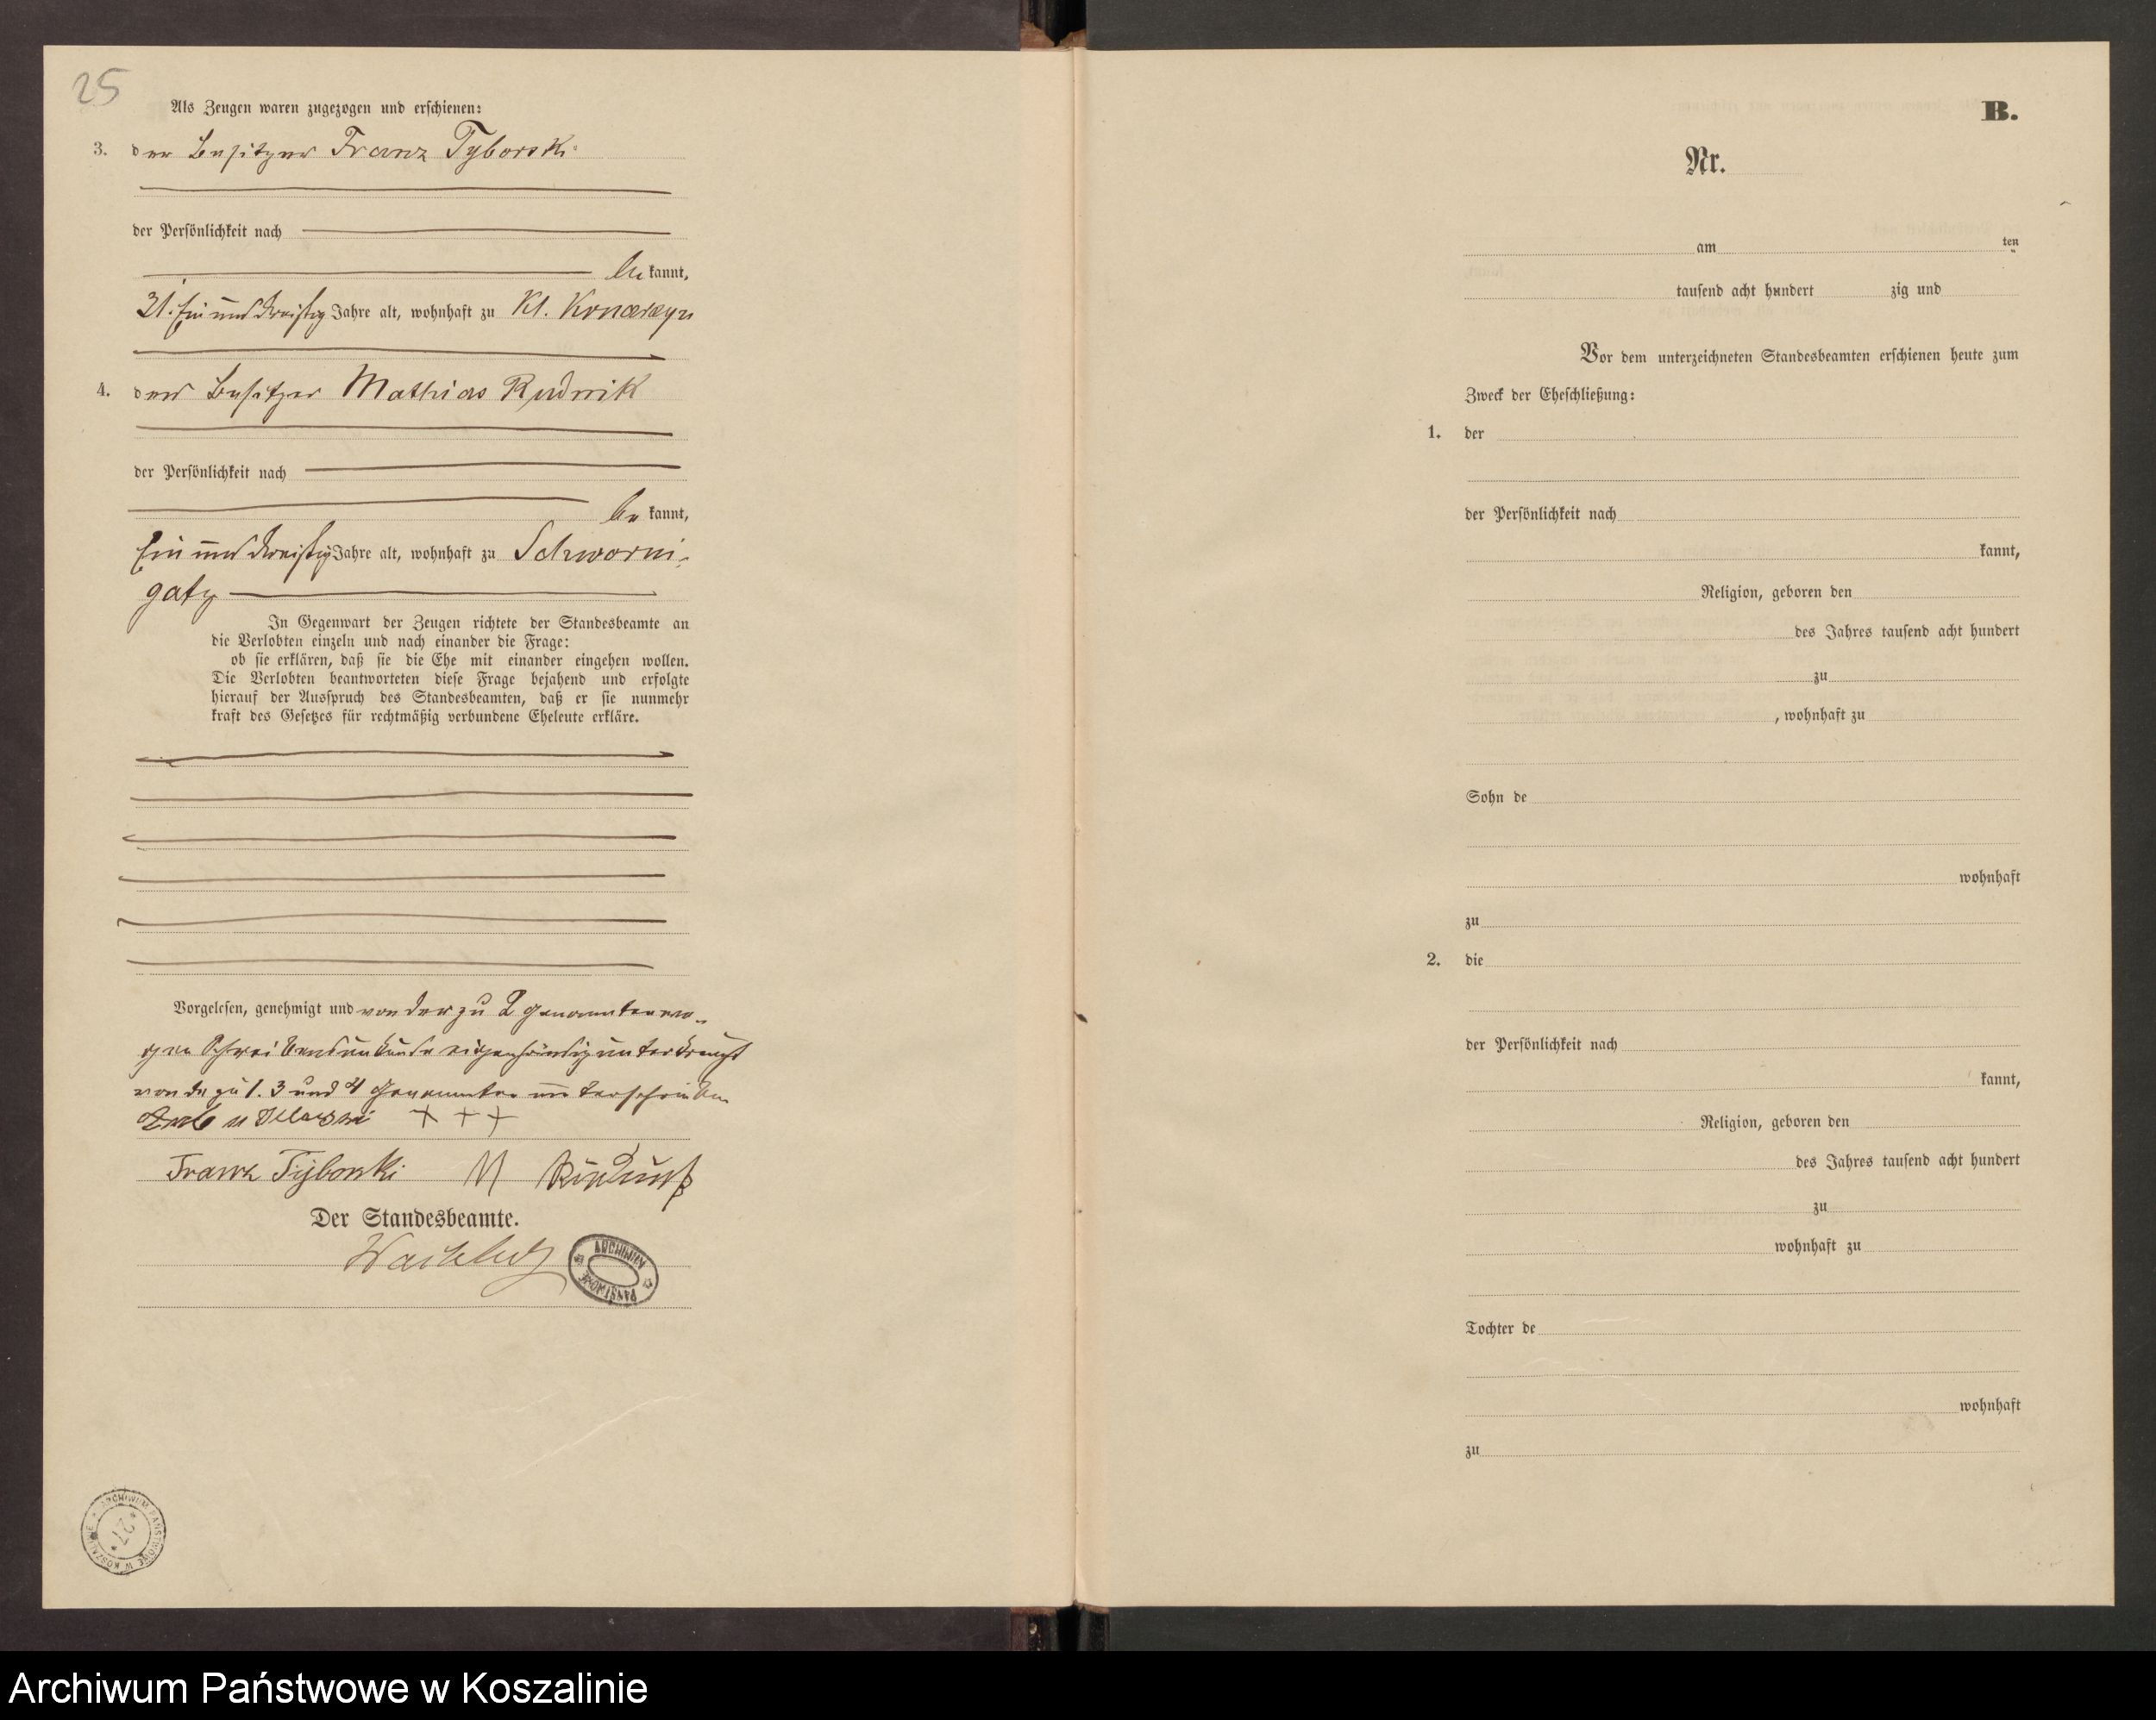 25
Als Zeugen waren zugezogen und erschienen:
3. der Besitzer Franz Tyborski
der Persönlichkeit nach
be kannt,
31. Ein und dreißig Jahre alt, wohnhaft zu Kl. Konarzyn
4. der Besitzer Mathias Rudnik
der Persönlichkeit nach
be kannt,
Ein und dreißig Jahre alt, wohnhaft zu Schworni-
gatz
In Gegenwart der Zeugen richtete der Standesbeamte an
die Verlobten einzeln und nach einander die Frage:
ob sie erklären, daß sie die Ehe mit einander eingehen wollen.
Die Verlobten beantworteten diese Frage bejahend und erfolgte
hierauf der Ausspruch des Standesbeamten, daß er sie nunmehr
kraft des Gesetzes für rechtmäßig verbundene Eheleute erkläre.
Vorgelesen, genehmigt und von der zu 2 genannten we-
gen Schreibensunkunde eigenhändig unterkreuzt
von den zu 1. 3 und 4 Genannten unterschrieben
+ + +
Franz Tyborski M
Der Standesbeamte.
ARCHIWUM PAŃSTWOWE
ARCHIWUM PAŃSTWOWE W KOSZALINIE
* 27 *
B.
Nr.
am ten
tausend acht hundert zig und
Vor dem unterzeichneten Standesbeamten erschienen heute zum
Zweck der Eheschließung:
1. der
der Persönlichkeit nach
kannt,
Religion, geboren den
des Jahres tausend acht hundert
zu
, wohnhaft zu
Sohn de
wohnhaft
zu
2. die
der Persönlichkeit nach
kannt,
Religion, geboren den
des Jahres tausend acht hundert
zu
wohnhaft zu
Tochter de
wohnhaft
zu
Archiwum Państwowe w Koszalinie